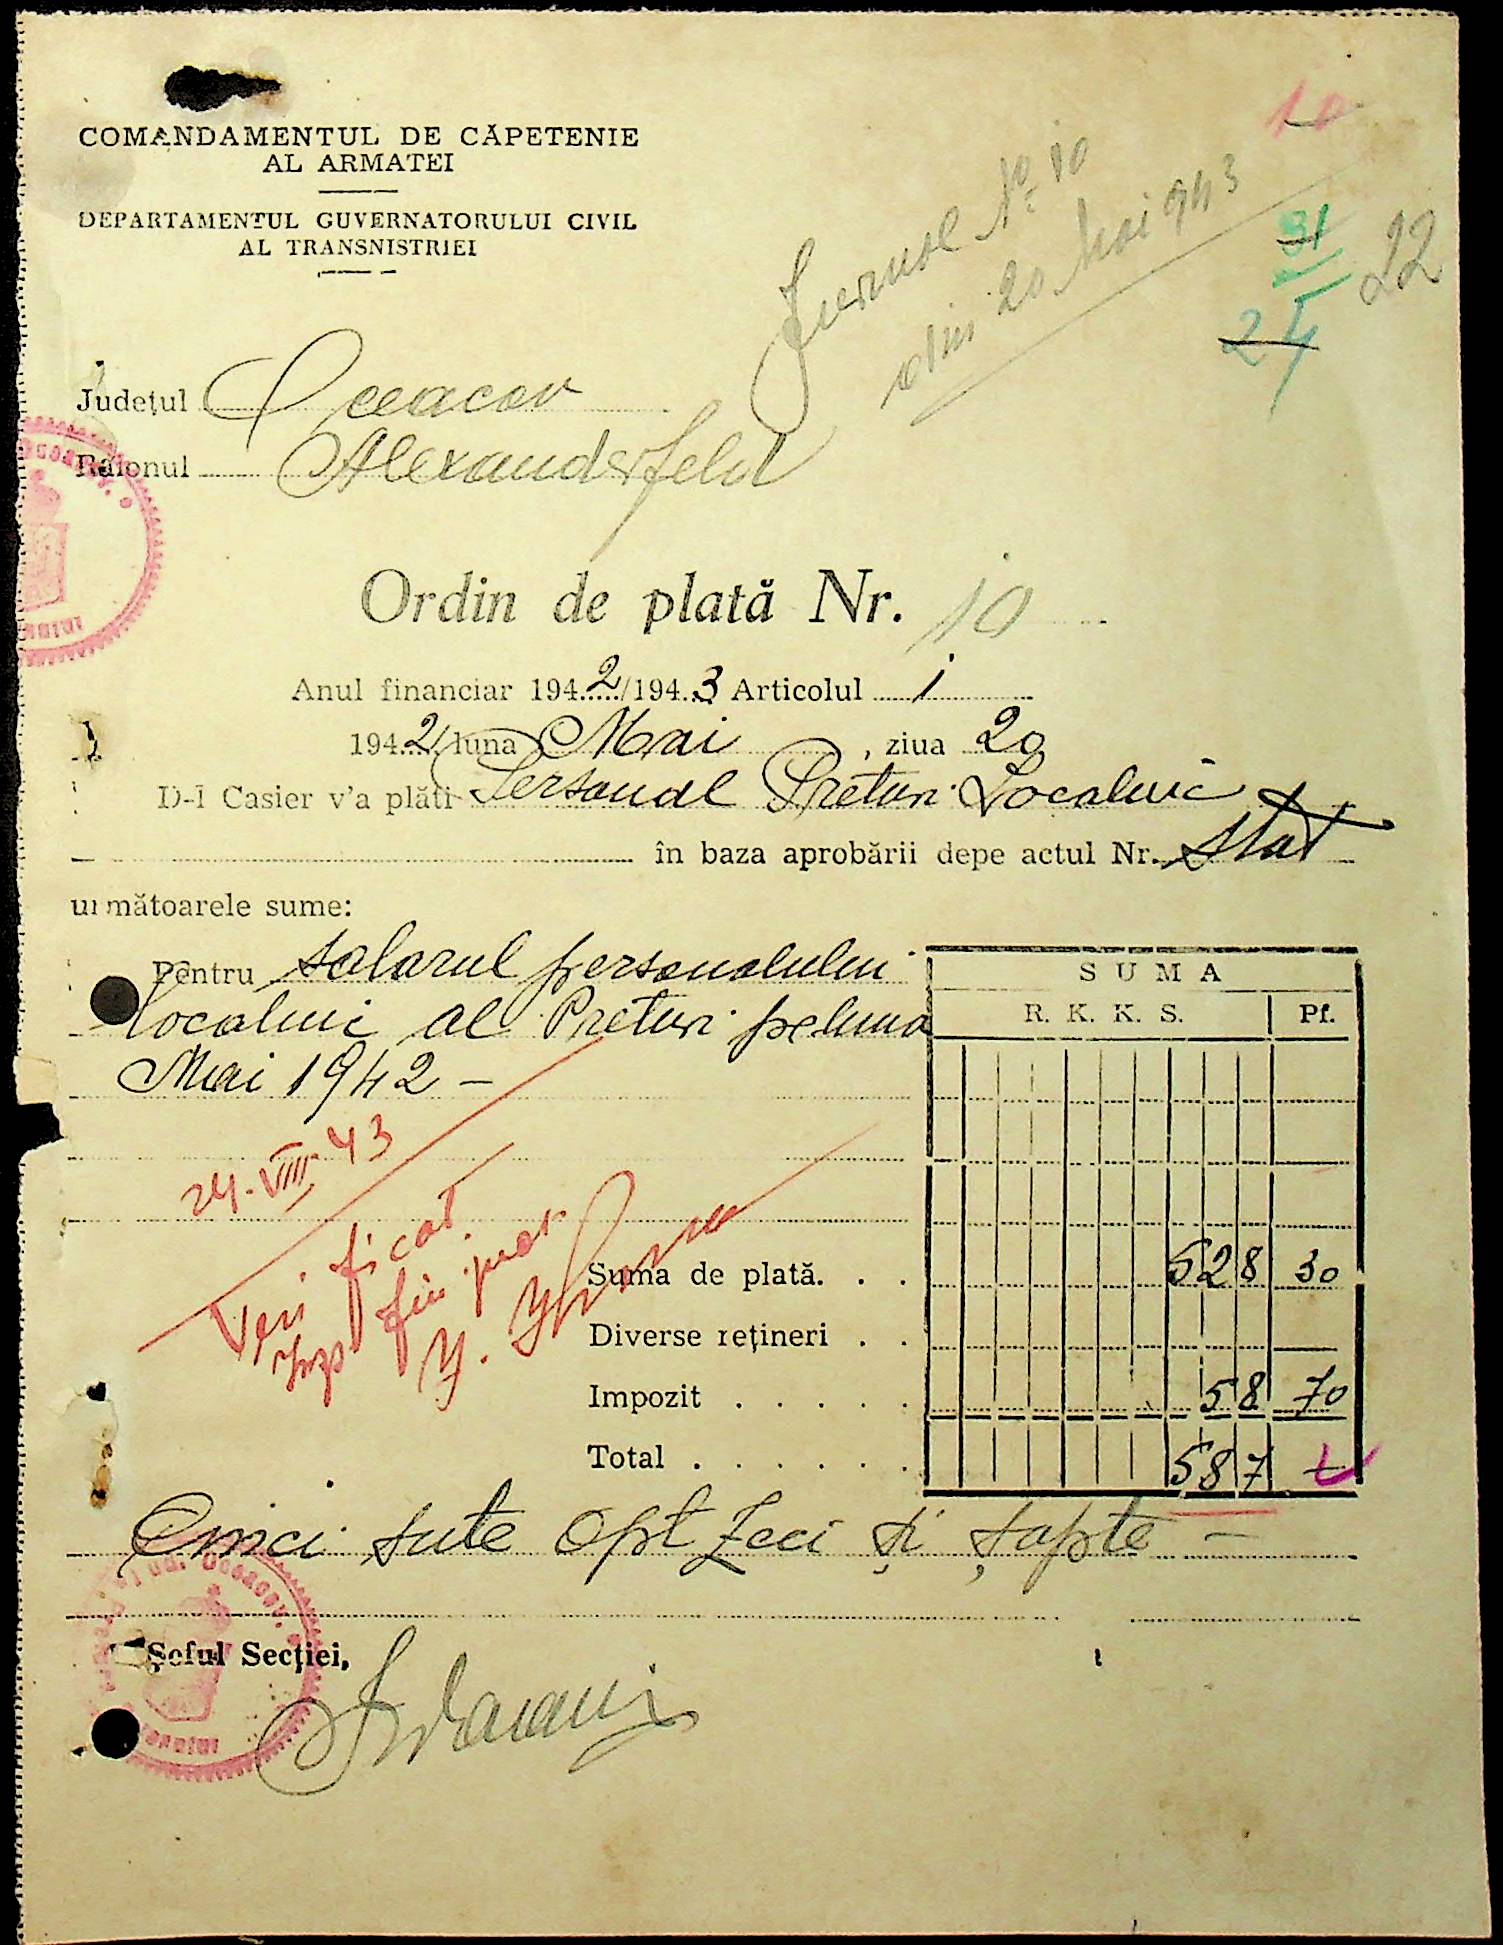 COMANDAMENTUL DE CĂPETENIE
AL ARMATEI
DEPARTAMENTUL GUVERNATORULUI CIVIL
AL TRANSNISTRIEI
10
Jurnal No 10
din 20 Mai 943
31
24
22
Județul Oceacov
Raionul Alexanderfeld
Ordin de plată Nr. 10
Anul financiar 1942/1943 Articolul 1
1942 luna Mai, ziua 20
D-l Casier v'a plăti Personal Preturi Localnic
în baza aprobării depe actul Nr. Stat
următoarele sume:
Pentru salarul personalului
localnic al Preturi pe luna
Mai 1942 –
SUMA
R. K. K. S. Pf.
24. VIII 43
Verificat
Insp fin
Suma de plată. . . 528 30
Diverse rețineri . .
Impozit . . . . . 58 70
Total . . . . . . 587 –
Cinci sute opt zeci și șapte –
Șeful Secției,